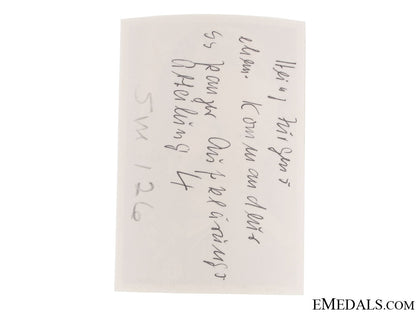 ehem. Kommandeur
SS Panzer Aufklärungs
Abteilung 4
SW 126
EMEDALS.COM